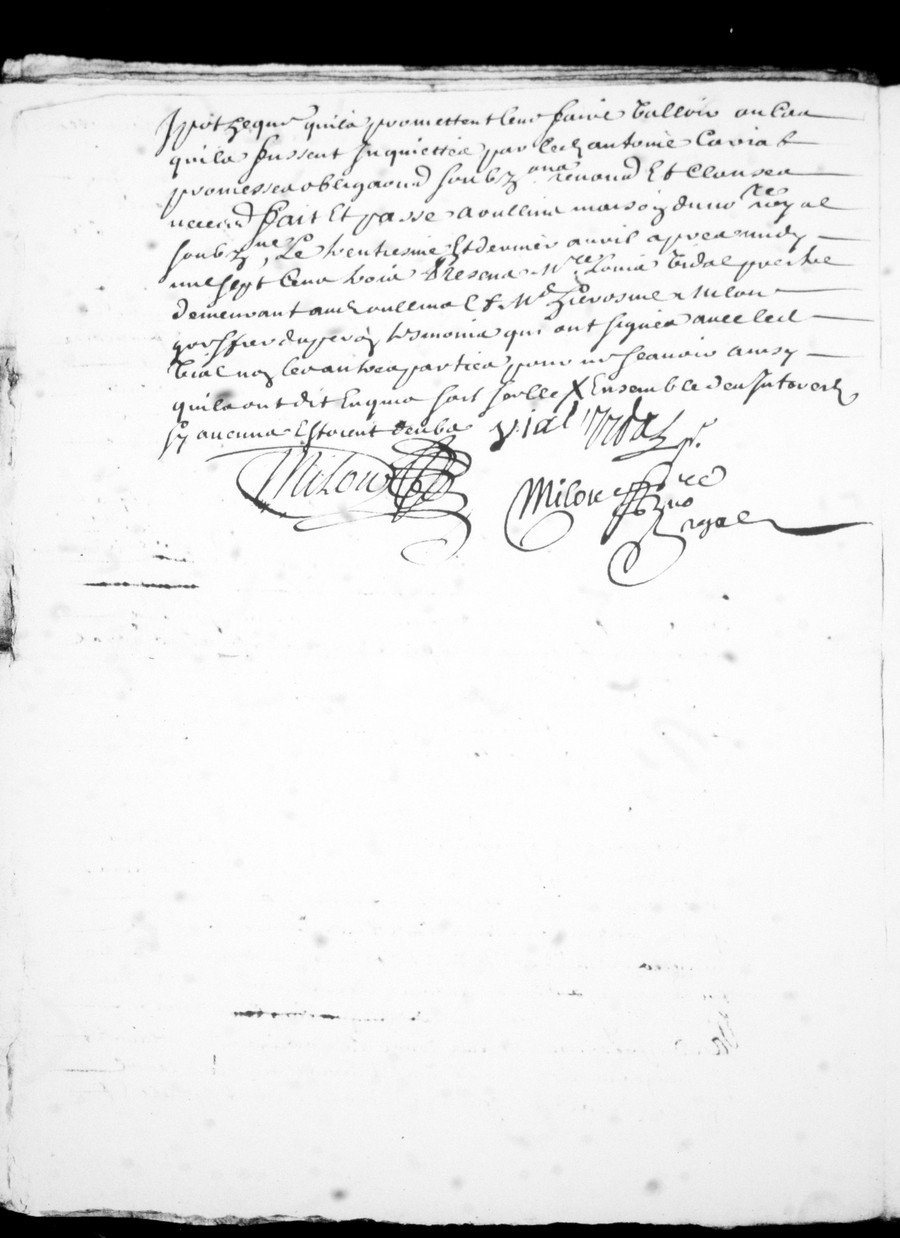 Ipotheque quils promettent leur faire valloir au cas
quils fussent Inquiettés par led antoine
promesses obligaons soubz ons renons Et Clauses
necess Fait Et passé a oullins maison du no re royal
soubz né, Le trentiesme Et dernier avril apres midy
mil sept Cens trois Presens Mre Louis Vidal prestre
demeurant aud oullins Et Me hierosme Milon
greffier dud tesmoins qui ont signés avec led
Vial non les autres parties pour ne scavoir ainsy
quils ont dit Enquis X Ensemble des Interest
sy aucuns Estoient deubs vial vidal p.
Milon
Milon no re
royal